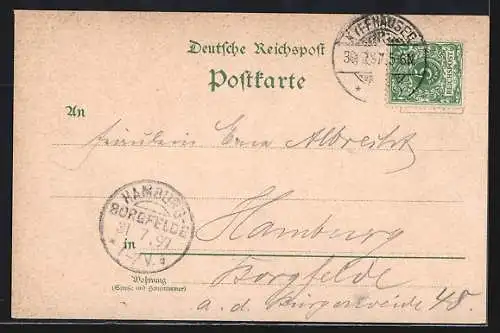 KYFFHÄUSER
Deutsche Reichspost
Postkarte
30/7 97. 5-6N
REICHSPOST
An
Fräulein Erna Albrecht
HAMBURG-
BORGFELDE
31 7. 97
in
Hamburg
Borgfelde
Wohnung
(Straße und Hausnummer)
a. d. Bürgerweide 48.